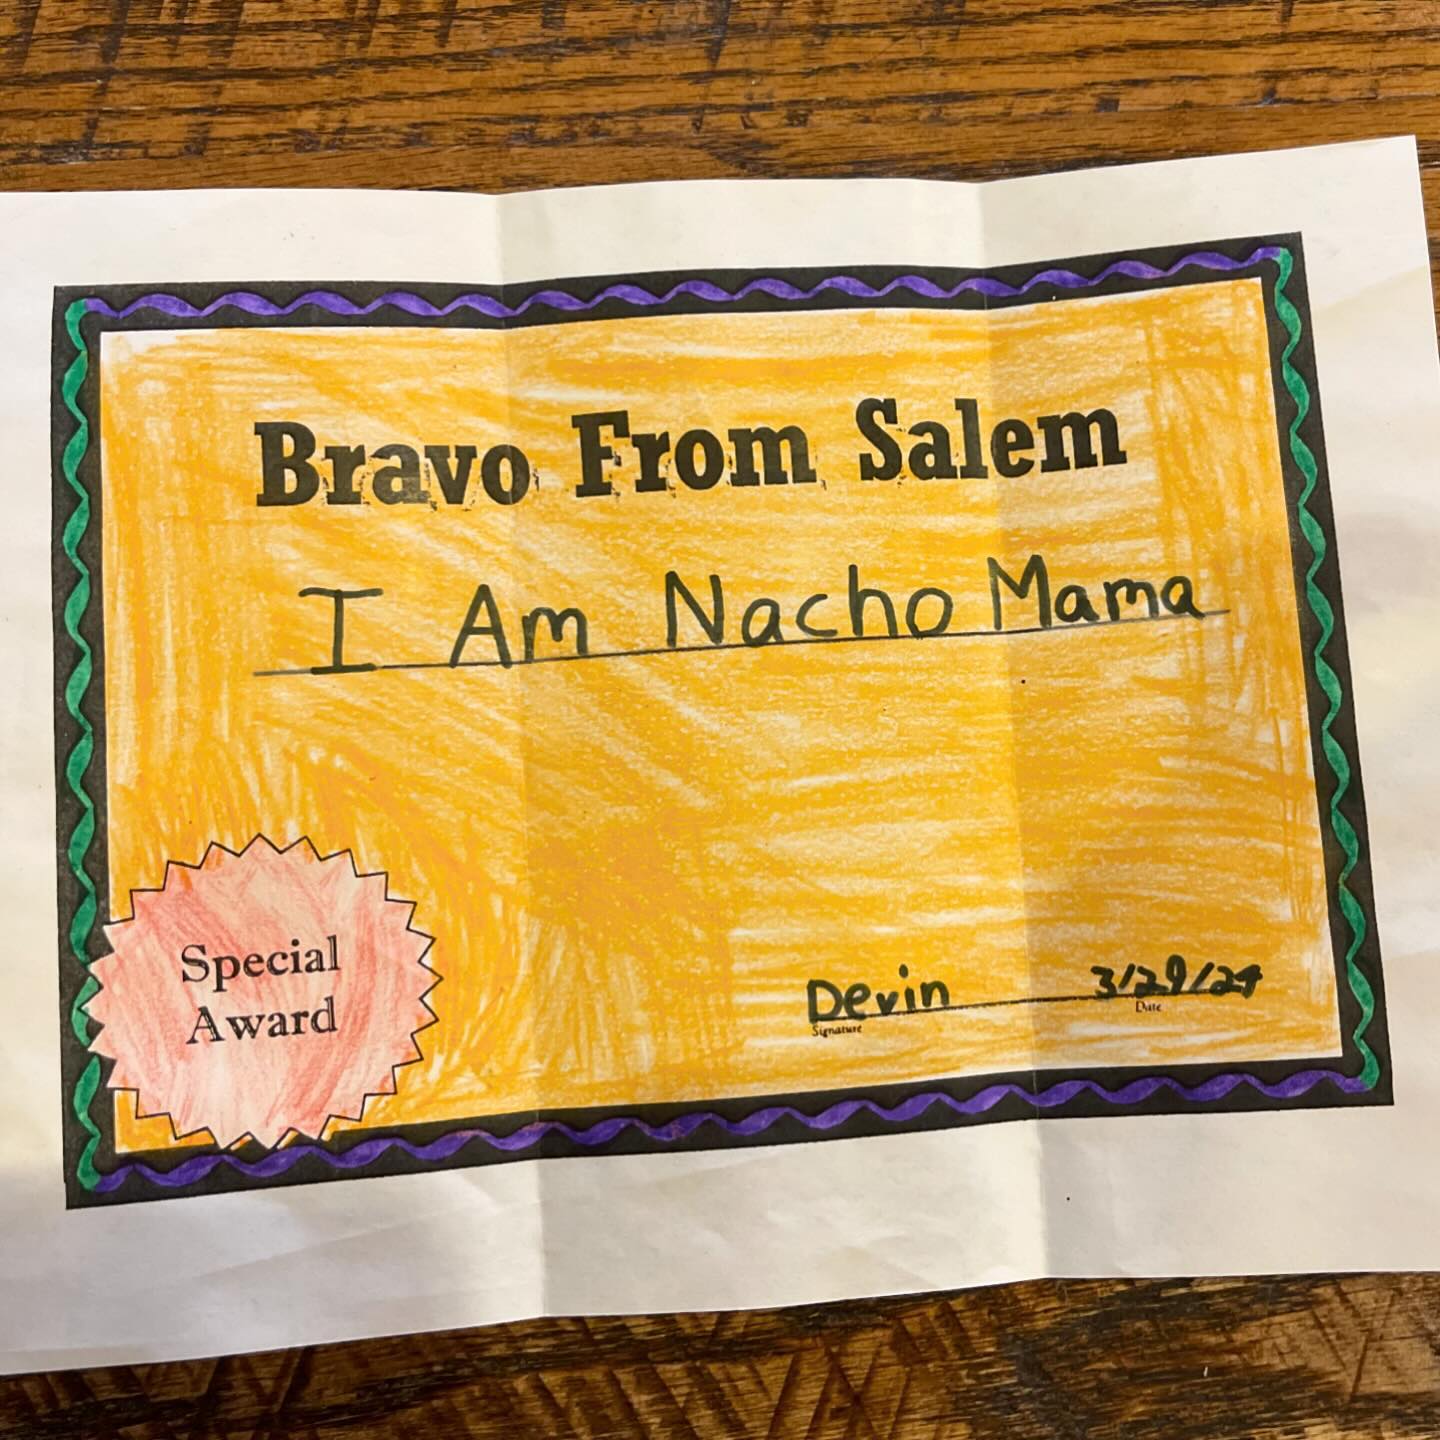 Bravo From Salem
I Am Nacho Mama
Special
Award
Devin 3/29/24
Signature Date